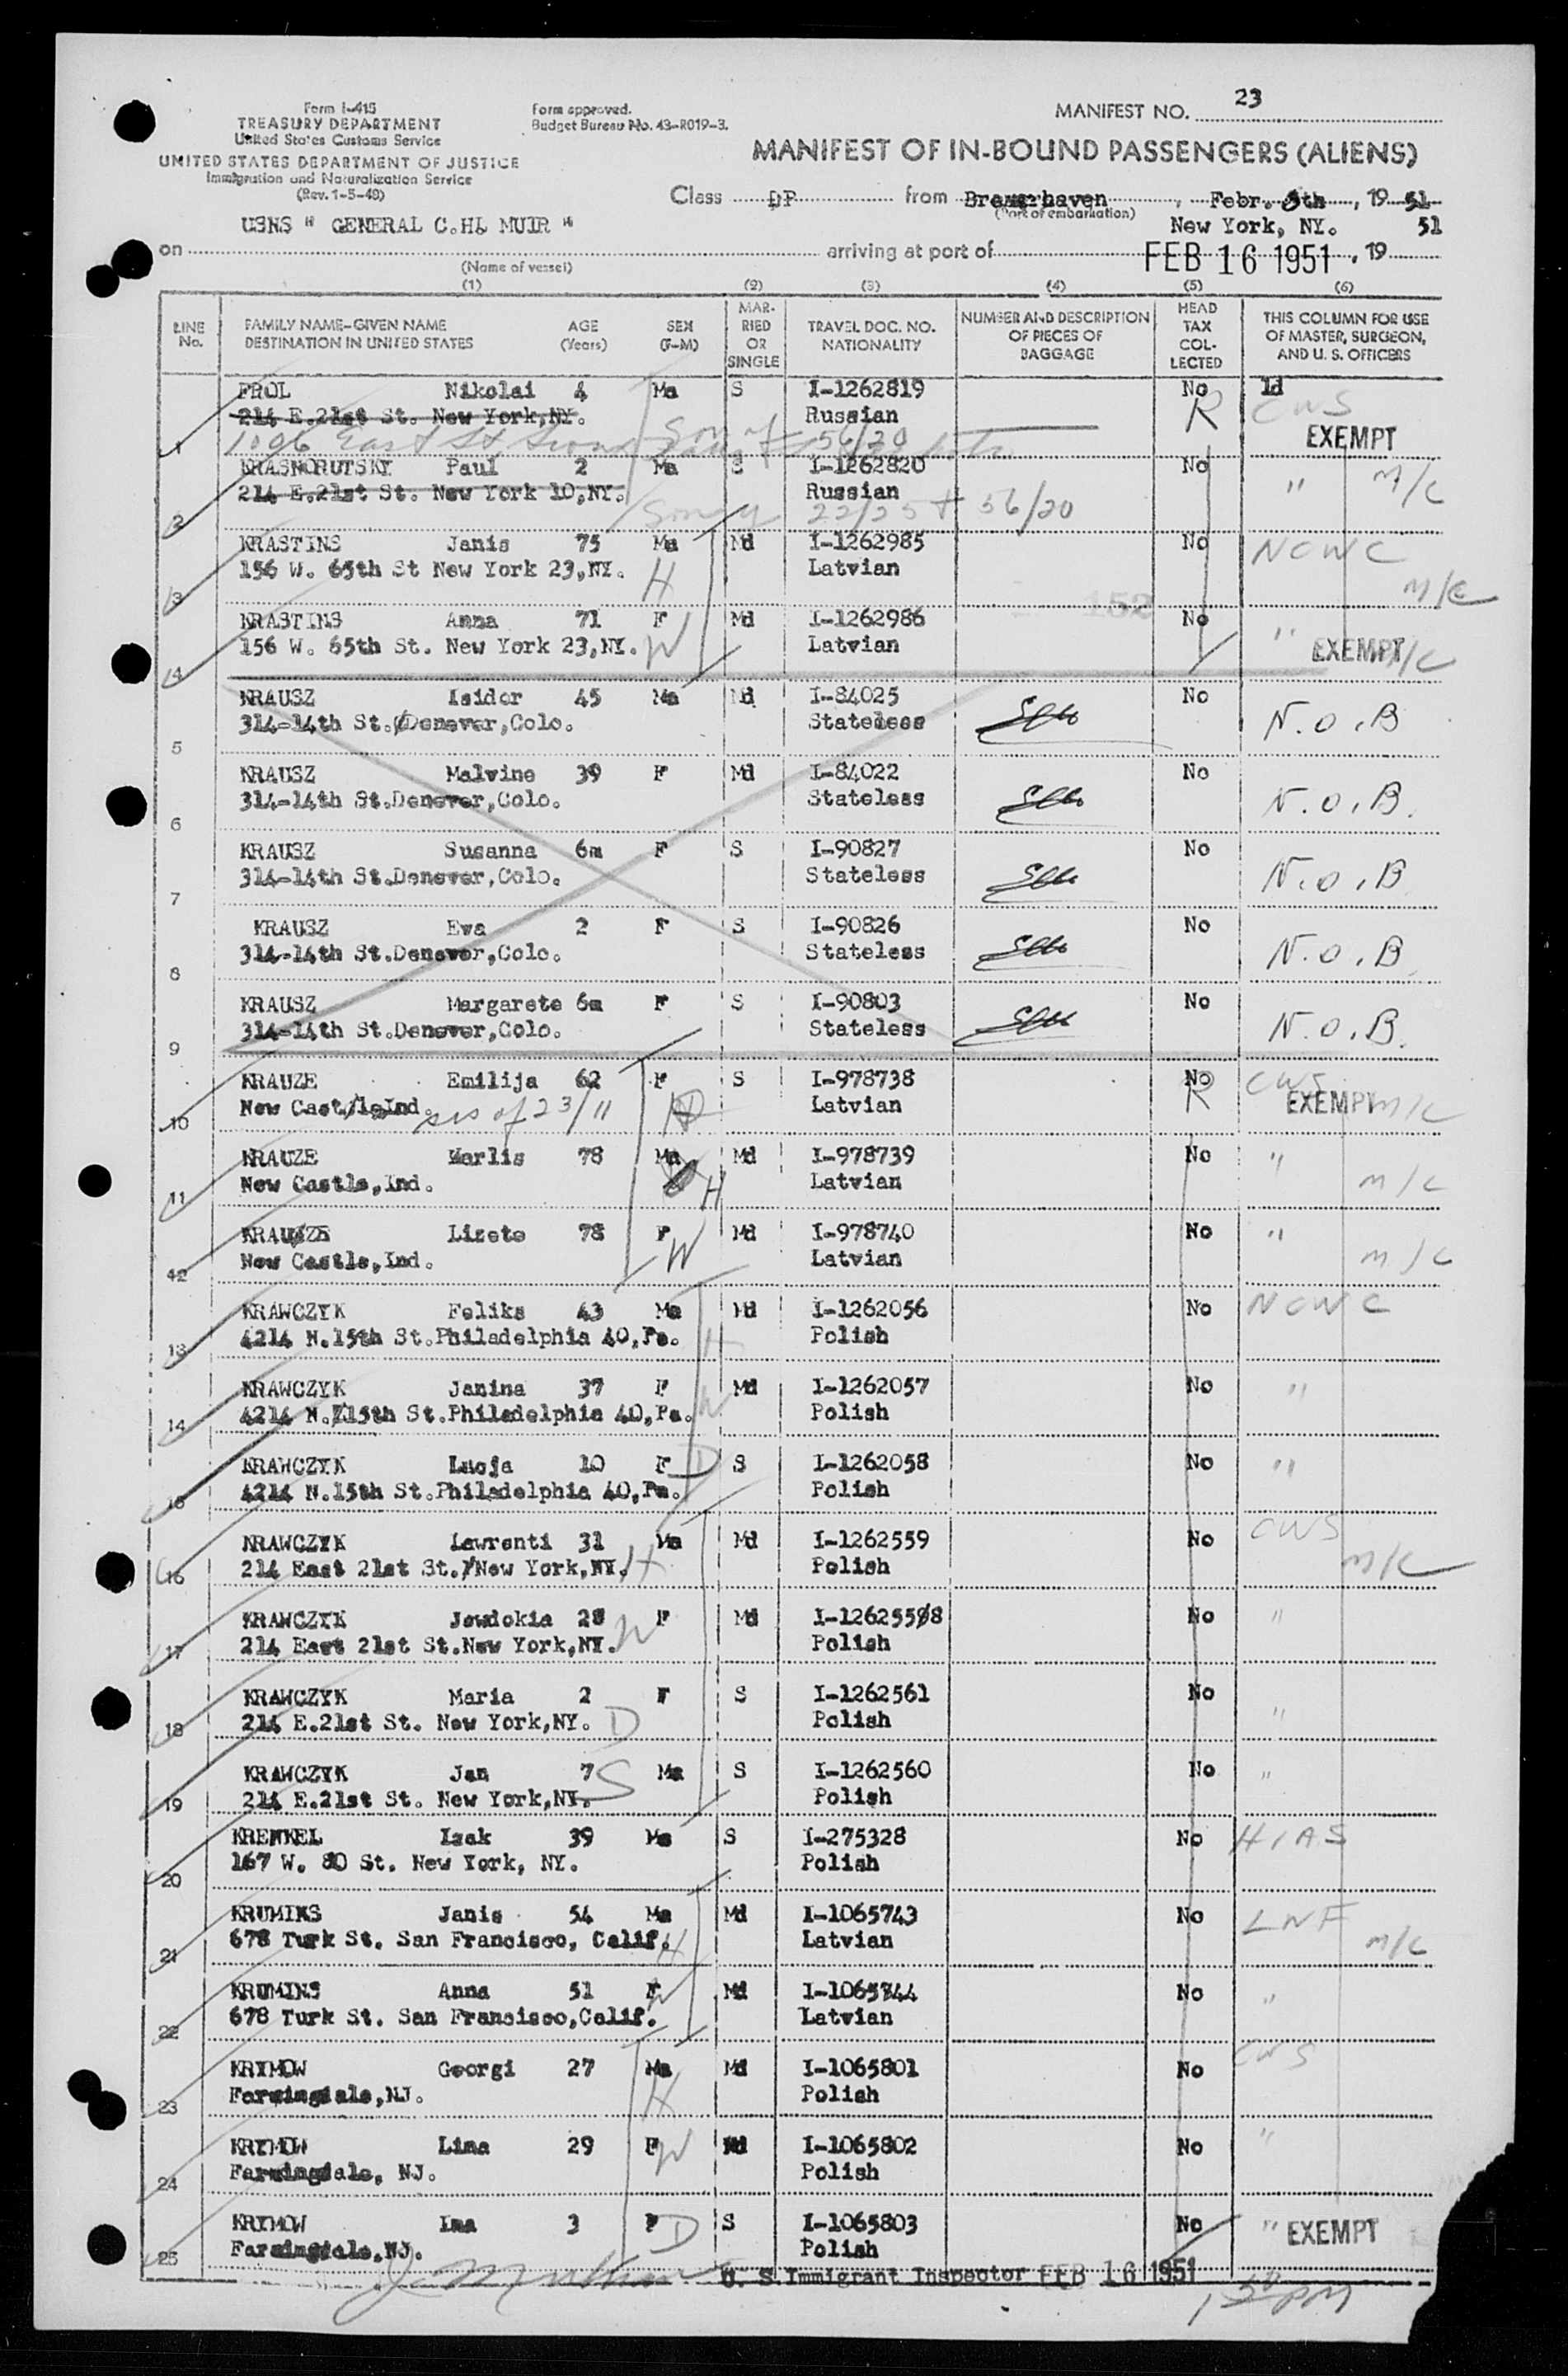 Form I-415
TREASURY DEPARTMENT
United States Customs Service
UNITED STATES DEPARTMENT OF JUSTICE
Immigration and Naturalization Service
(Rev. 1-5-49)
Form approved.
Budget Bureau No. 43-R019-3.
MANIFEST NO. 23
MANIFEST OF IN-BOUND PASSENGERS (ALIENS)
Class DP from Bremerhaven, Febr. 5th, 1951
(Port of embarkation)
USNS " GENERAL C.H. MUIR " New York, NY. 51
on arriving at port of FEB 16 1951, 19
(Name of vessel)
(1) (2) (3) (4) (5) (6)
LINE No. FAMILY NAME-GIVEN NAME DESTINATION IN UNITED STATES AGE (Years) SEX (F-M) MARRIED OR SINGLE TRAVEL DOC. NO. NATIONALITY NUMBER AND DESCRIPTION OF PIECES OF BAGGAGE HEAD TAX COLLECTED THIS COLUMN FOR USE OF MASTER, SURGEON, AND U. S. OFFICERS
FROL Nikolai 4 Ma S I-1262819 No ld
214 E.21st St. New York,NY. Russian R CWS
1 1096 East St Son of 56/20 EXEMPT
KRASNORUTSKY Paul 2 Ma S I-1262820 No
214 E.21st St. New York 10,NY. Russian " M/C
2 Son of 22/25 + 56/20
KRASTINS Janis 75 Ma Md I-1262985 No NCWC
156 W. 65th St New York 23,NY. H Latvian
3 152 M/C
KRASTINS Anna 71 F Md I-1262986 No
156 W. 65th St. New York 23,NY. W Latvian " EXEMPT M/C
4
KRAUSZ Isidor 45 Ma Md I-84025 No
314-14th St. Denever,Colo. Stateless N.O.B
5
KRAUSZ Malvine 39 F Md I-84022 No
314-14th St.Denever,Colo. Stateless N.O.B.
6
KRAUSZ Susanna 6m F S I-90827 No
314-14th St.Denever,Colo. Stateless N.O.B
7
KRAUSZ Eva 2 F S I-90826 No
314-14th St.Denever,Colo. Stateless N.O.B.
8
KRAUSZ Margarete 6m F S I-90803 No
314-14th St.Denever,Colo. Stateless N.O.B.
9
KRAUZE Emilija 62 F S I-978738 No CWS
New Castle,Ind. sis of 23/11 Latvian R EXEMPT M/C
10
KRAUZE Marlis 78 Ma Md I-978739 No "
New Castle,Ind. H Latvian M/C
11
KRAUZE Lizete 78 F Md I-978740 No "
New Castle,Ind. W Latvian M/C
12
KRAWCZYK Feliks 43 Ma Md I-1262056 No NCWC
4214 N.15th St.Philadelphia 40,Pa. H Polish
13
KRAWCZYK Janina 37 F Md I-1262057 No "
4214 N.15th St.Philadelphia 40,Pa. W Polish
14
KRAWCZYK Lucja 10 F D S I-1262058 No "
4214 N.15th St.Philadelphia 40,Pa. Polish
15
KRAWCZYK Lawrenti 31 Ma Md I-1262559 No CWS
214 East 21st St. New York,NY. H Polish M/C
16
KRAWCZYK Jewdokia 28 F Md I-1262558 No "
214 East 21st St.New York,NY. W Polish
17
KRAWCZYK Maria 2 F S I-1262561 No
214 E.21st St. New York,NY. D Polish "
18
KRAWCZYK Jan 7 S Ma S I-1262560 No "
214 E.21st St. New York,NY. Polish
19
KRENKEL Izak 39 Ma S I-275328 No HIAS
167 W. 80 St. New York, NY. Polish
20
KRUMINS Janis 54 Ma Md I-1065743 No LNF
678 Turk St. San Francisco, Calif. H Latvian M/C
21
KRUMINS Anna 51 F W Md I-1065744 No "
678 Turk St. San Francisco,Calif. Latvian
22
KRYMOW Georgi 27 Ma Md I-1065801 No CWS
Farmingdale,NJ. H Polish
23
KRYMOW Lina 29 F W Md I-1065802 No "
Farmingdale, NJ. Polish
24
KRYMOW Ina 3 F D S I-1065803 No " EXEMPT
Farmingdale,NJ. Polish
25
U. S. Immigrant Inspector FEB 16 1951
PM